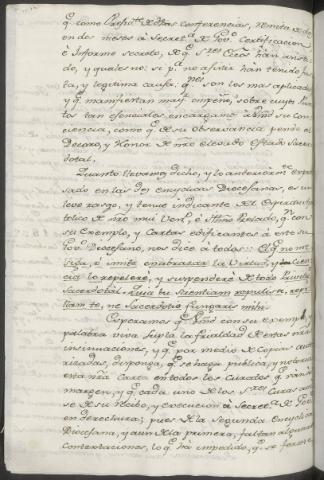 q.e como Presid.te de d.has conferencias, remita de dos
en dos meses à Secret.a de Gov.o Certificacion
è Informe secreto, de q.e S.res Curas han asisti-
do, y quales no: si p.a no asistir han tenido fal-
ta, y legitima causa: q.nes son los mas aplicados
y q.e manifiestan may.r empeño, sobre cuyos Pun-
tos tan esenciales, encargamos à d.ho su Con-
ciencia, como q.e de su observancia pende el
Decoro, y Honor de nro elevado Estado Sacer-
dotal.
Quanto llevamos dicho, y lo anteriorm.te expre-
sado en las dos encyclicas Diocesanas, es un
leve rasgo, y tenue indicante del Espiritu Apos-
tolico de nro mui Ven.e è Illmo Prelado, q.n con
su Exemplo, y Cartas edificantes à este su
Gov.no Diocesano, nos dice à todos: El q.e no me
siga, è imite en abrazar la Virtud, y la Cien-
cia lo repeleré, y suspenderé de todo Privilegio
Sacerdotal. Quia tu scientiam repulisti, repel-
lam te, ne Sacerdotio fungaris mihi.
Esperamos q.e Vmd con su exemplo, y
palabra viva supla la frialdad de estas nras
insinuaciones, y q.e por medio de Copias auto-
rizadas, disponga, q.e se haga publica, y notoria
esta nra Carta en todos los Curatos q.e van al
margen, y q.e cada uno de los S.res Curas avi-
se de su recibo, y execucion à Secret.a de Gov.o
en derechura; pues de la segunda Encyclica
Diocesana, y aun de la primera, faltan algunas
contestaciones, lo q.e ha impedido, q.e se forme